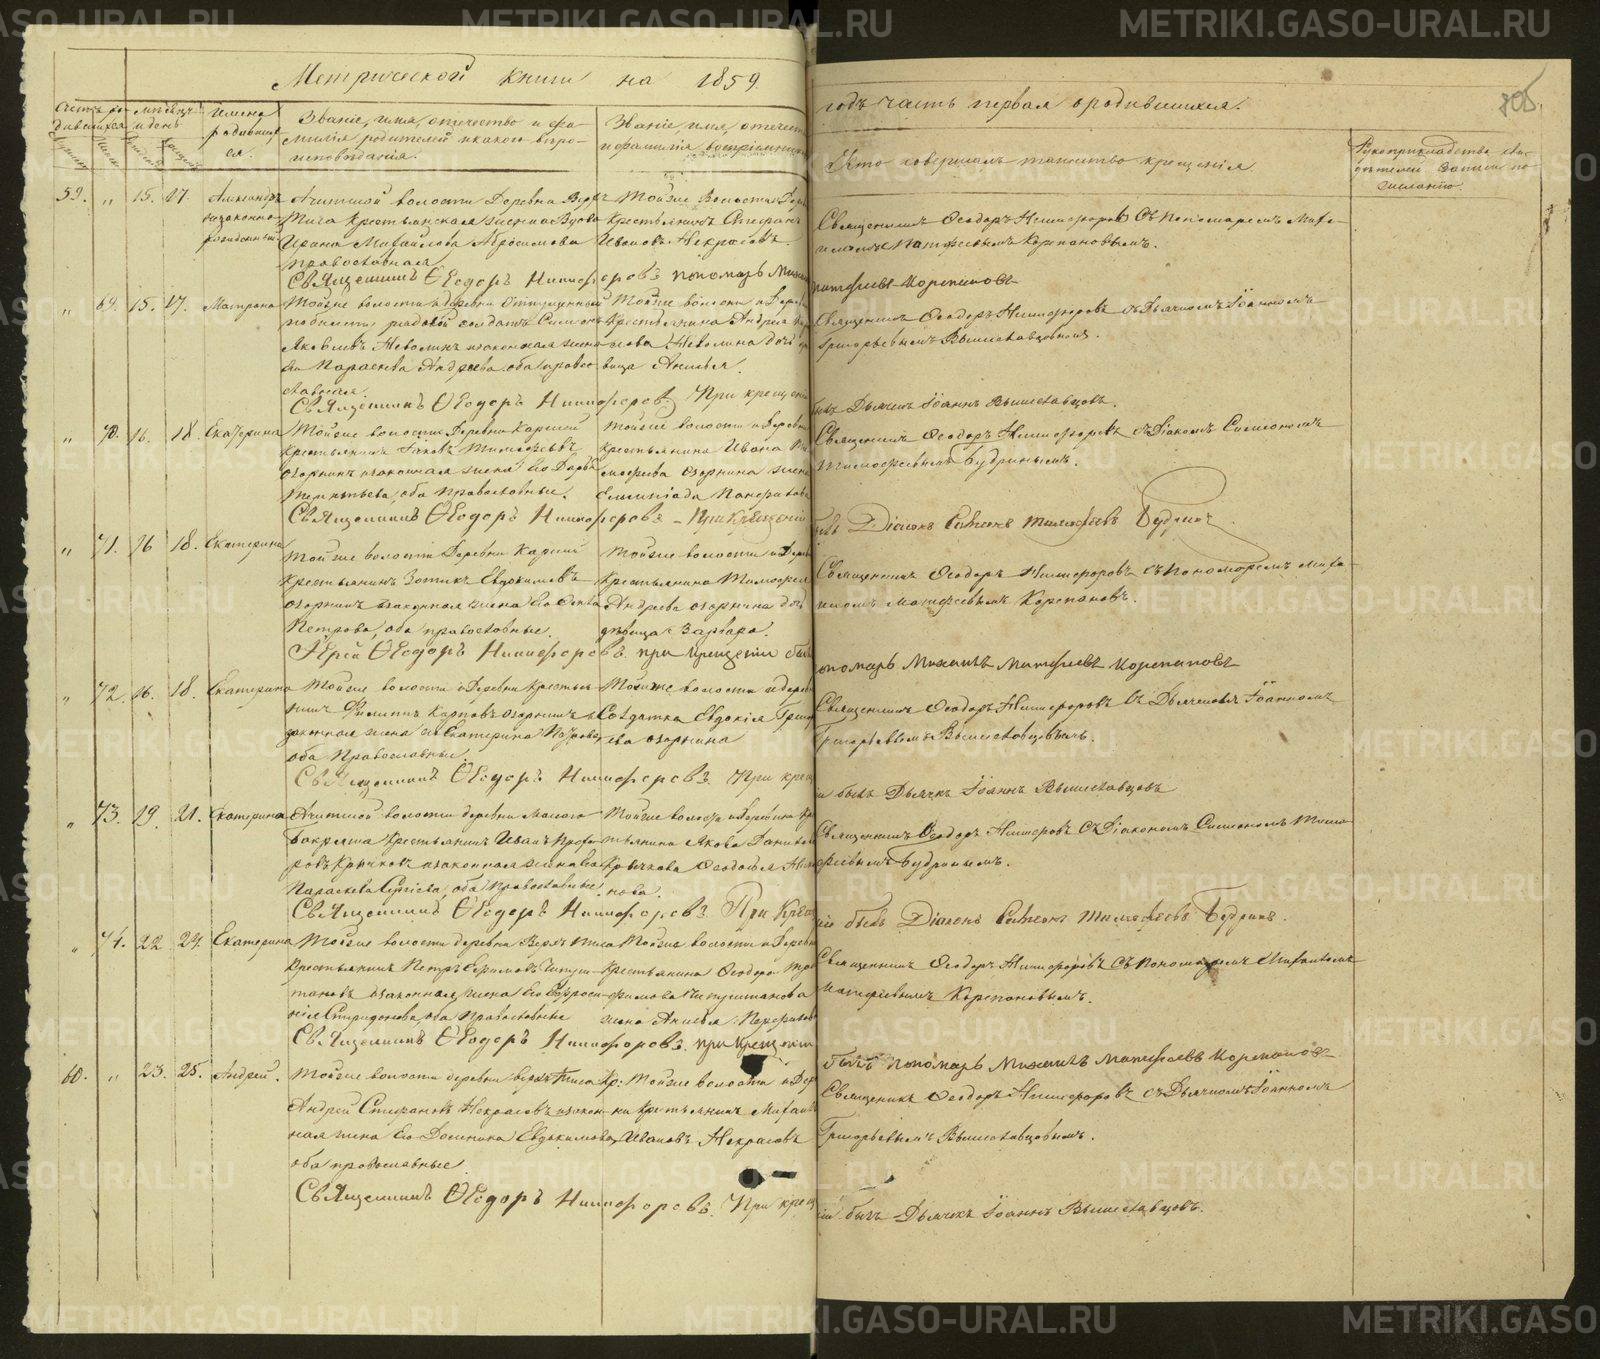 Метрической книги на 1859.
годъ часть первая о родившихся.
705.
Счетъ ро-
дившихся
Мѣсяцъ
и день
Имена
родивших-
ся.
Званіе, имя, отчество и фа-
милія родителей и какого вѣро-
исповѣданія.
Званіе, имя, отчество
и фамилія воспріемниковъ
Кто совершалъ таинство крещенія
Рукоприкладство сви-
дѣтелей записи по
желанію.
59. " 15. 17. Александръ
незаконно-
рожденный
Ачитской волости Деревни Верхъ
Тиса Крестьянская жена Вдова
Ирина Михайлова Абросимова
православная
Тойже Волости Дерев
Крестьянинъ Стефанъ
Ивановъ Некрасовъ.
Священникъ Ѳеодоръ Никифоровъ Съ Пономаремъ Миха-
иломъ Матфеевымъ Корепановымъ.
Священникъ Ѳеодоръ Никифоровъ пономарь Михаилъ
Матфеевъ Корепановъ
" 69. 15. 17. Матрона
Тойже волости и деревни Отпущенный
по билету рядовой солдатъ Симеонъ
Яковлевъ Неволинъ и законная жена
его Параскева Андреева оба право-
славная.
Тойже волости и Дерев
Крестьянина Андрея
Неволина дочь
вица Анисья.
Священникъ Ѳеодоръ Никифоровъ съ Дьячкомъ Іоанномъ
Григорьевымъ Вышеславцовымъ.
Священникъ Ѳеодоръ Никифоровъ При крещеніи
былъ Дьячекъ Іоаннъ Вышеславцовъ.
" 70. 16. 18. Екатерина
Тойже волости Деревни Каргиной
Крестьянинъ Іаковъ Тимофеевъ
Озорнинъ и законная жена его Дарья
Терентьева, оба православные.
Тойже волости и Деревни
Крестьянина Ивана
Озорнина жена
Олимпіада Панфилова
Священникъ Ѳеодоръ Никифоровъ съ Діакономъ Симеономъ
Тимофеевымъ Будринымъ.
Священникъ Ѳеодоръ Никифоровъ – При крещеніи
былъ Діаконъ Симеонъ Тимофеевъ Будринъ
" 71. 16 18. Екатерина
Тойже волости Деревни Каргиной
Крестьянинъ Зотикъ Евдокимовъ
Озорнинъ и законная жена его
Петрова, оба православные.
Тойже волости и Деревни
Крестьянина Тимофея
Андреева Озорнина дочь
дѣвица Варвара.
Священникъ Ѳеодоръ Никифоровъ съ Пономаремъ Миха-
иломъ Матфеевымъ Корепановъ.
Іерей Ѳеодоръ Никифоровъ. при крещеніи былъ
пономарь Михаилъ Матфеевъ Корепановъ
" 72. 16. 18. Екатерина
Тойже волости и Деревни Крестья-
нинъ Филиппъ Карповъ Озорнинъ и
законная жена его Екатерина
оба Православные.
Тойже волости и деревни
Солдатка Евдокія Григорь-
ева Озорнина
Священникъ Ѳеодоръ Никифоровъ Съ Дьячкомъ Іоанномъ
Григорьевымъ Вышеславцовымъ.
Священникъ Ѳеодоръ Никифоровъ. При крещ
и былъ Дьячекъ Іоаннъ Вышеславцовъ
" 73. 19. 21. Екатерина
Ачитской волости деревни Малаго
Бакряша Крестьянинъ Иванъ
Крючковъ и законная жена его
Параскева Сергіева, оба православные.
Тойже волости и деревни Кре-
стьянина Якова Данилова
Крючкова Ѳеодосья
нова.
Священникъ Ѳеодоръ Никифоровъ Съ Діакономъ Симеономъ Тимо-
феевымъ Будринымъ.
Священникъ Ѳеодоръ Никифоровъ При Крещ
ніи былъ Діаконъ Симеонъ Тимофеевъ Будринъ.
" 74. 22 24. Екатерина
Тойже волости деревни Верхъ Тиса
Крестьянинъ Петръ
и законная жена его Ефроси-
нія Спиридонова, оба Православные
Тойже волости и Деревни
Крестьянина Ѳеодора
жена Анисья
Священникъ Ѳеодоръ Никифоровъ Съ Пономаремъ Михаиломъ
Матфеевымъ Корепановымъ.
Священникъ Ѳеодоръ Никифоровъ. при крещеніи
былъ Пономарь Михаилъ Матфеевъ Корепановъ
60. " 23. 25. Андрей.
Тойже волости деревни Верхъ Тиса Кр:
Андрей Стефановъ Некрасовъ и закон-
ная жена его Домнина Евдокимова
оба православные
Тойже волости и Дерев
ни Крестьянинъ Михаилъ
Ивановъ Некрасовъ
Священникъ Ѳеодоръ Никифоровъ съ Дьячкомъ Іоанномъ
Григорьевымъ Вышеславцовымъ.
Священникъ Ѳеодоръ Никифоровъ. При крещ
ніи былъ Дьячекъ Іоаннъ Вышеславцовъ.
METRIKI.GASO-URAL.RU